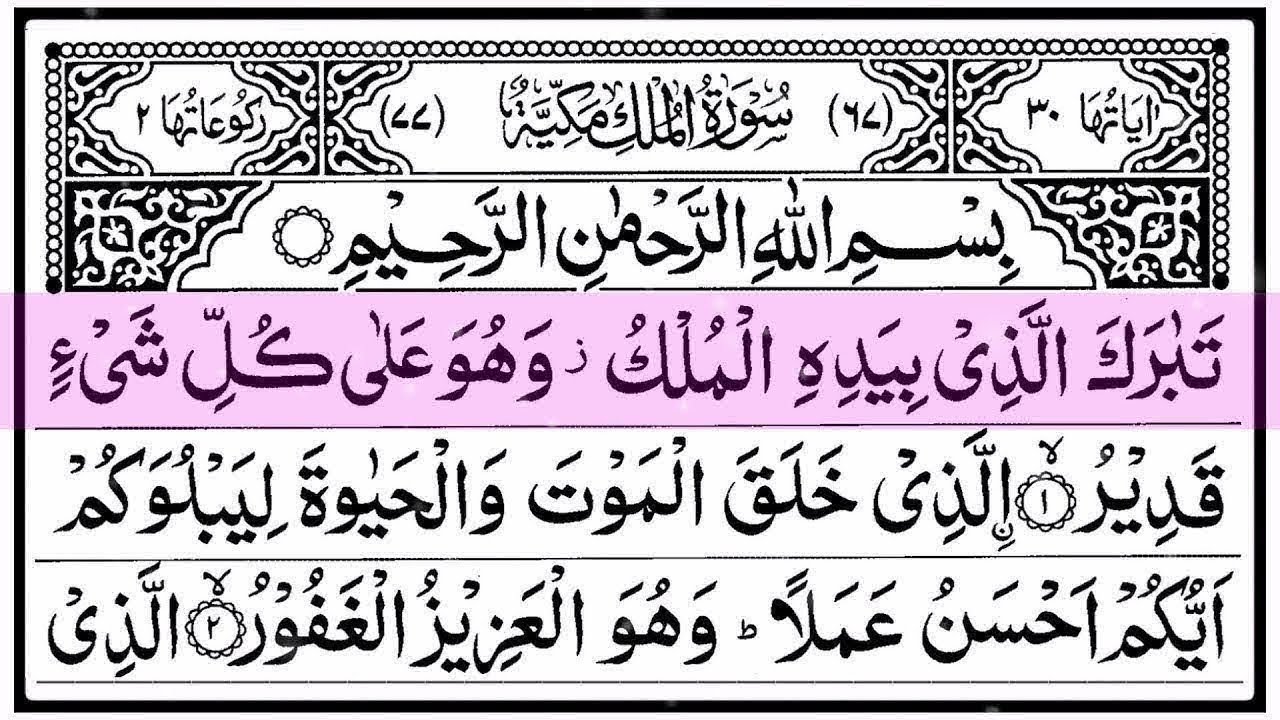 اٰيَاتُهَا ٣٠ (٦٧) سُوْرَةُ الْمُلْكِ مَكِّيَّةٌ (٧٧) رُكُوْعَاتُهَا ٢
بِسْمِ اللّٰهِ الرَّحْمٰنِ الرَّحِيْمِ
تَبٰرَكَ الَّذِیْ بِيَدِهِ الْمُلْكُ ز وَهُوَ عَلٰی كُلِّ شَیْءٍ
قَدِيْرُ ۙ﴿١﴾ اۨلَّذِیْ خَلَقَ الْمَوْتَ وَالْحَيٰوةَ لِيَبْلُوَكُمْ
اَيُّكُمْ اَحْسَنُ عَمَلًا ؕ وَهُوَ الْعَزِيْزُ الْغَفُوْرُ ۙ﴿٢﴾ الَّذِیْ